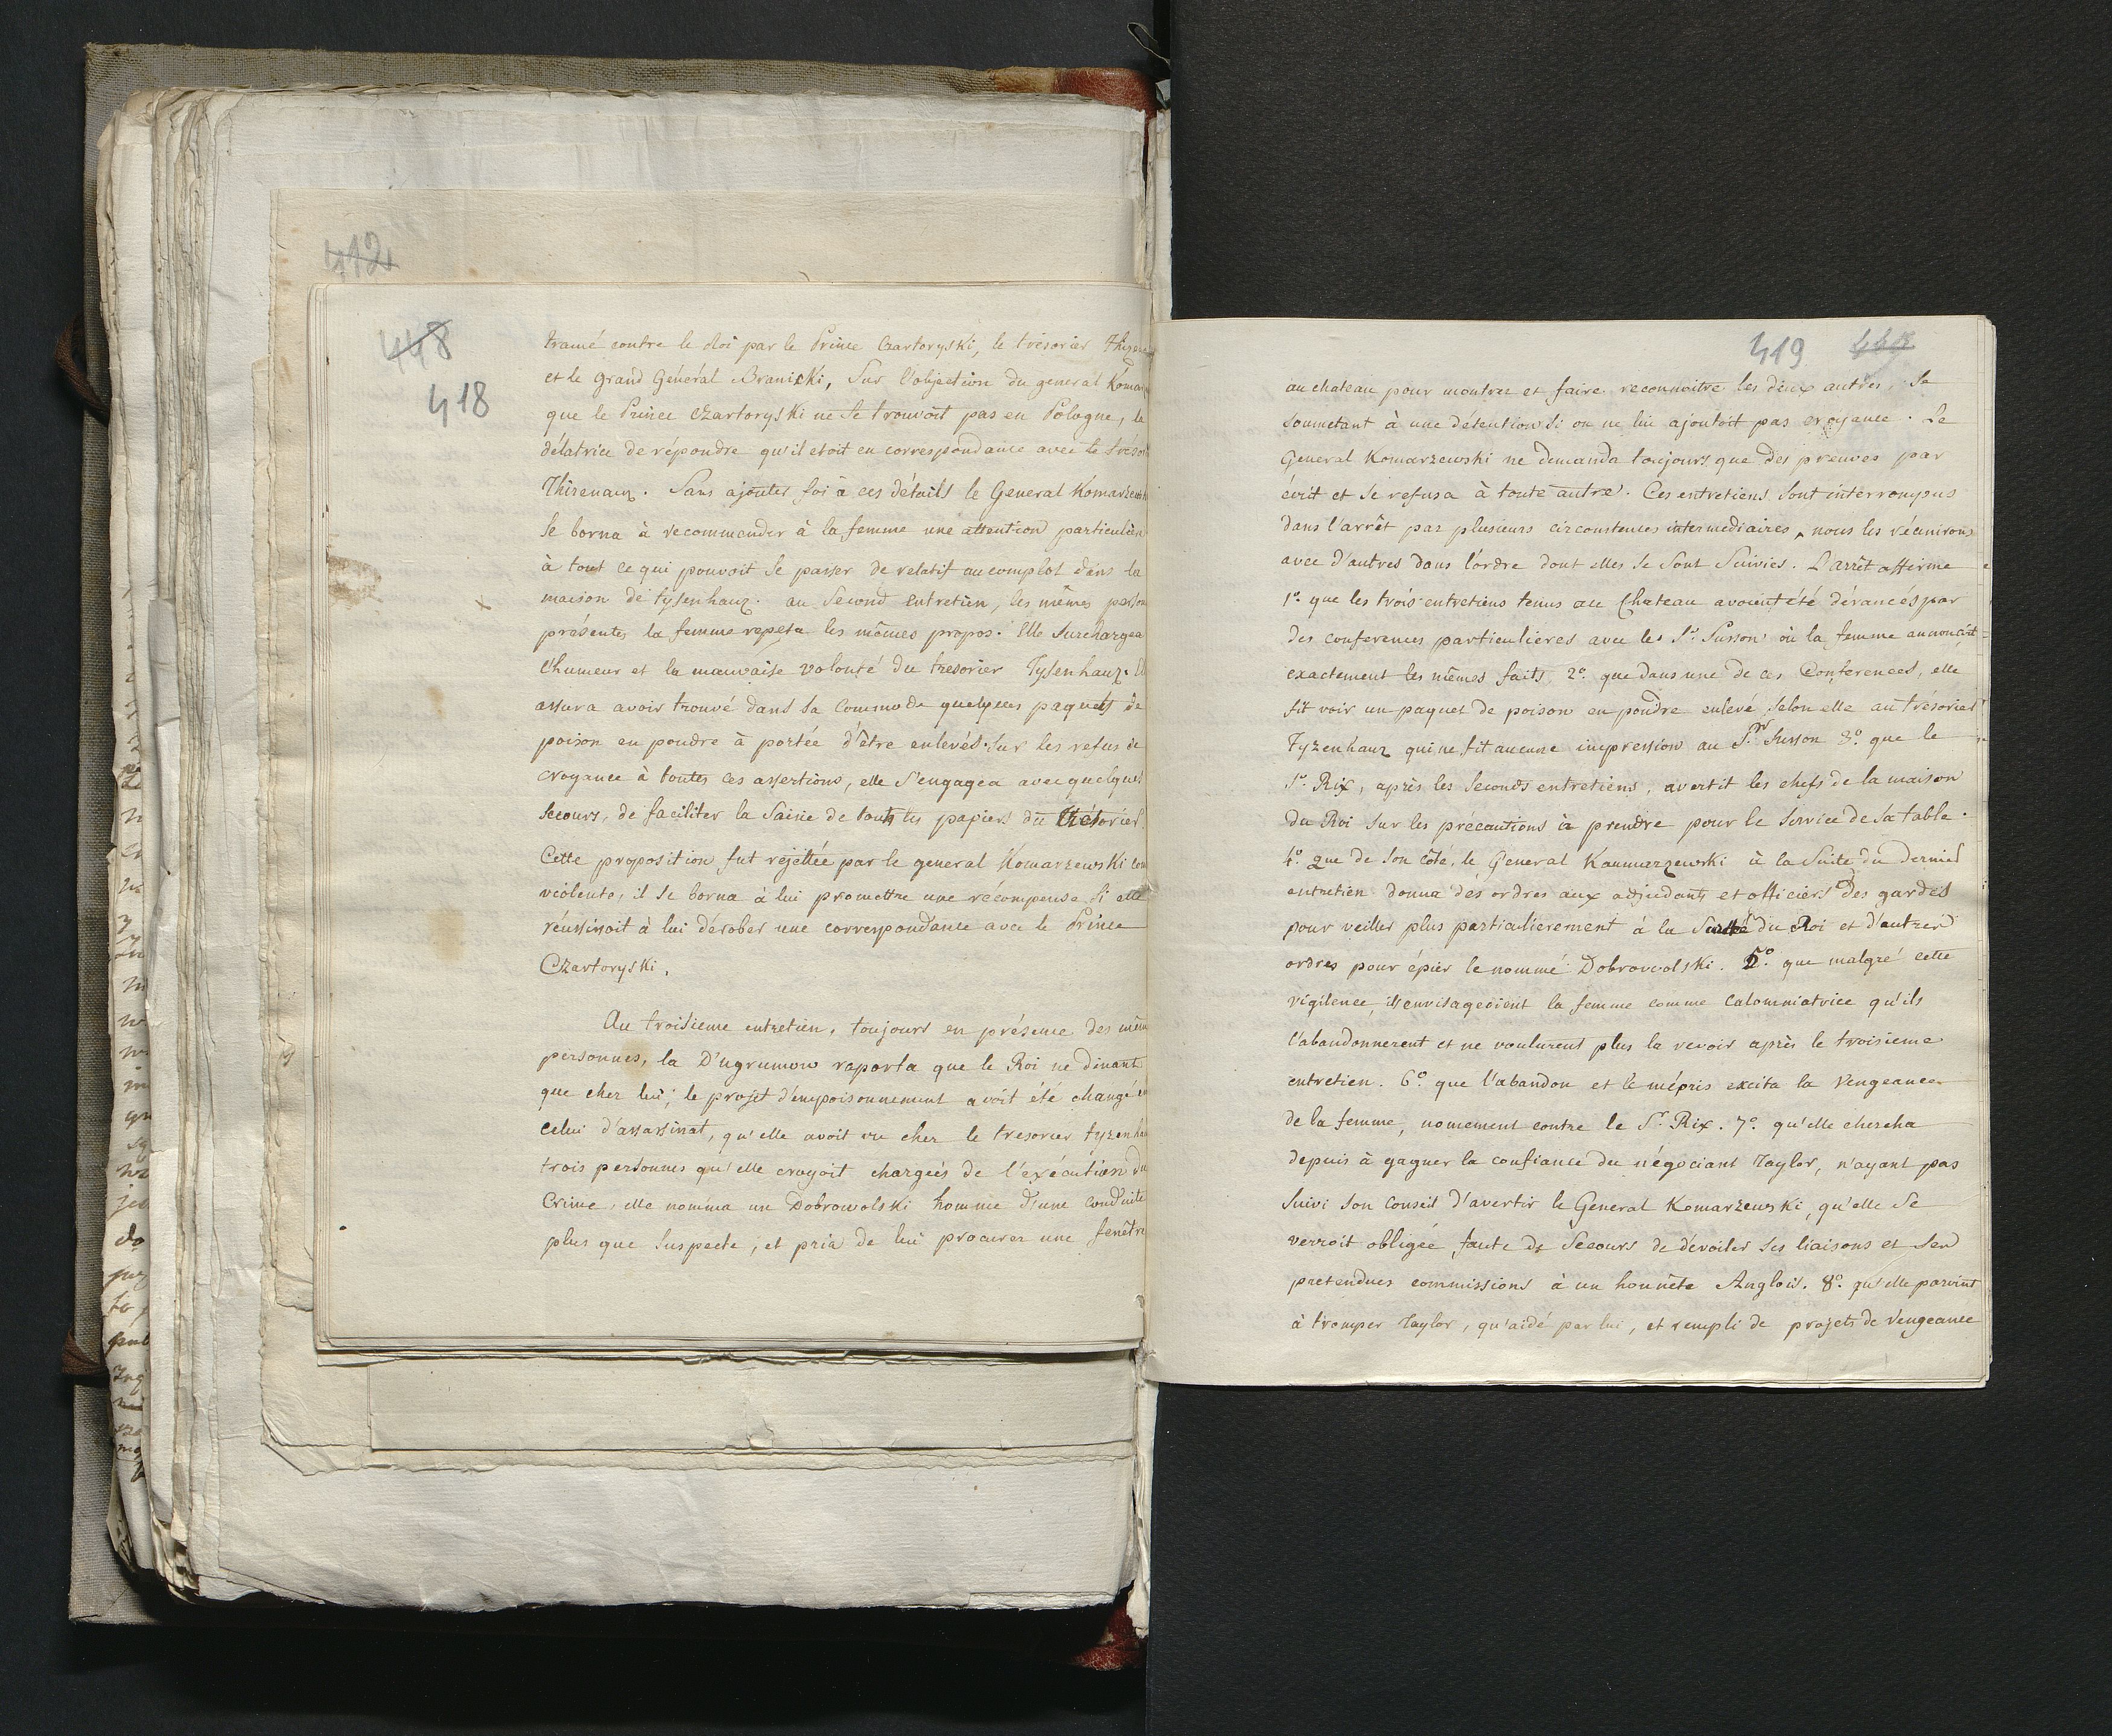 412
448
418
tramé contre le Roi par le Prince Czartoryski, le trésorier
et le Grand Général Branicki, Sur l'objection du general
que le Prince Czartoryski ne se trouvoit pas en Pologne, la
délatrice de répondre qu'il etoit en correspondance avec le
Thizenauz. Sans ajouter foi à ces détails le General
se borna à recommender à la femme une attention
à tout ce qui pouvoit se passer de relatif au complot dans la
maison de tysenhauz. au Second entretien, les mêmes
présentes la femme repeta les mêmes propos. Elle Surchargea
l'humeur et la mauvaise volonté du tresorier Tysenhauz.
assura avoir trouvé dans sa commode quelques paquets de
poison en poudre à portée d'être enlevés. Sur les refus de
croyance à toutes ces assertions, elle s'engagea avec quelques
Secours, de faciliter la Saisie de touts les papiers du trésorier.
Cette proposition fut rejettée par le general Komarzewski
violente, il se borna à lui promettre une récompense Si elle
réussissoit à lui dérober une correspondance avec le Prince
Czartoryski.
Au troisieme entretien, toujours en présence des
personnes, la D'ugrumow raporta que le Roi ne dinant
que chez lui, le projet d'empoisonnement avoit été changé
celui d'assassinat, qu'elle avoit vu chez le tresorier
trois personnes qu'elle croyoit chargeés de l'exécution du
Crime, elle nomma un Dobrowolski homme d'une conduite
plus que Suspecte, et pria de lui procurer une fenêtre
419
au chateau pour montrer et faire reconnoitre les deux autres, Se
soumetant à une détention Si on ne lui ajoutoit pas croyance. Le
General Komarzewski ne demanda toujours que des preuves par
écrit et se refusa à toute autre. Ces entretiens sont interrompus
dans l'arrêt par plusieurs circonstences intermediaires, nous les réunirons
avec d'autres dans l'ordre dont elles se sont Suivies. L'arrêt affirme
1º que les trois entretiens tenus au Chateau avoient été dévancés par
des conferences particulieres avec les Sr. Susson où la femme annonçoit
exactement les mêmes faits, 2º. que dans une de ces Conferences, elle
fit voir un paquet de poison en poudre enlevé selon elle au trésorier
Tyzenhauz qui ne fit aucune impression au Sr. Susson 3º. que le
Sr. Rix, après les Seconds entretiens, avertit les chefs de la maison
du Roi sur les précautions à prendre pour le Service de Sa table.
4º. que de Son côté, le General Kaumarzewski à la Suite du dernier
entretien donna des ordres aux adjudants et officiers des gardes
pour veiller plus particulierement à la Sureté du Roi et d'autres
ordres pour épier le nommé Dobrowolski. 5º. que malgré cette
vigilence, ils envisageoient la femme comme Calomniatrice qu'ils
l'abandonnerent et ne voulurent plus la revoir après le troisieme
entretien. 6º. que l'abandon et le mépris excita la Vengeance
de la femme, nomement contre le Sr. Rix. 7º. qu'elle chercha
depuis à gagner la confiance du négociant Taylor, n'ayant pas
Suivi Son Conseil d'avertir le General Komarzewski, qu'elle Se
verroit obligée, faute de Secours de dévoiler ses liaisons et ses
pretendues commissions à un honnête Anglois. 8º. qu'elle parvint
à tromper Taylor, qu'aidé par lui, et rempli de projets de vengeance